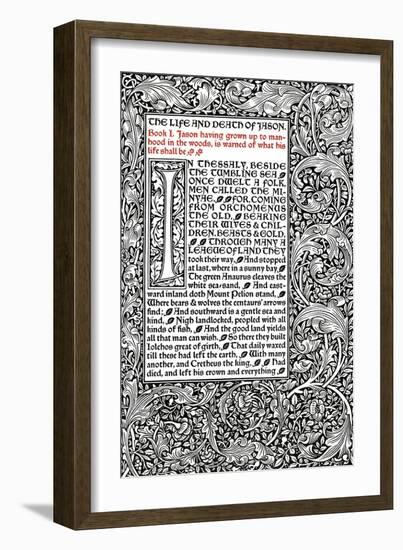 THE LIFE AND DEATH OF JASON.
Book I. Jason having grown up to man-
hood in the woods, is warned of what his
life shall be
IN THESSALY, BESIDE
THE TUMBLING SEA,
ONCE DWELT A FOLK,
MEN CALLED THE MI-
NYAE;
FOR, COMING
FROM ORCHOMENUS
THE OLD,
BEARING
THEIR WIVES & CHIL-
DREN, BEASTS & GOLD,
THROUGH MANY A
LEAGUE OF LAND THEY
took their way, And stopped
at last, where in a sunny bay,
The green Anaurus cleaves the
white sea-sand, And east-
ward inland doth Mount Pelion stand,
Where bears & wolves the centaurs' arrows
find; And southward is a gentle sea and
kind, Nigh landlocked, peopled with all
kinds of fish, And the good land yields
all that man can wish. So there they built
Iolchos great of girth, That daily waxed
till these had left the earth, With many
another, and Cretheus the king, Had
died, and left his crown and everything